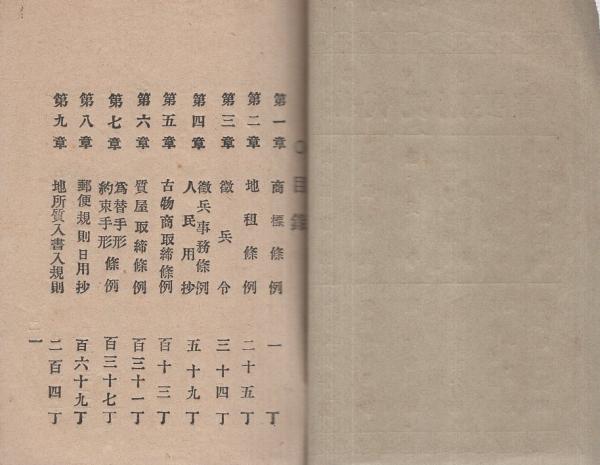 ○目錄
第一章 商標條例 一丁
第二章 地租條例 二十五丁
第三章 徵兵令 三十四丁
第四章 徵兵事務條例人民用抄 五十九丁
第五章 古物商取締條例 百十三丁
第六章 質屋取締條例 百三十一丁
第七章 爲替手形約束手形條例 百三十七丁
第八章 郵便規則日用抄 百六十九丁
第九章 地所質入書入規則 二百四丁